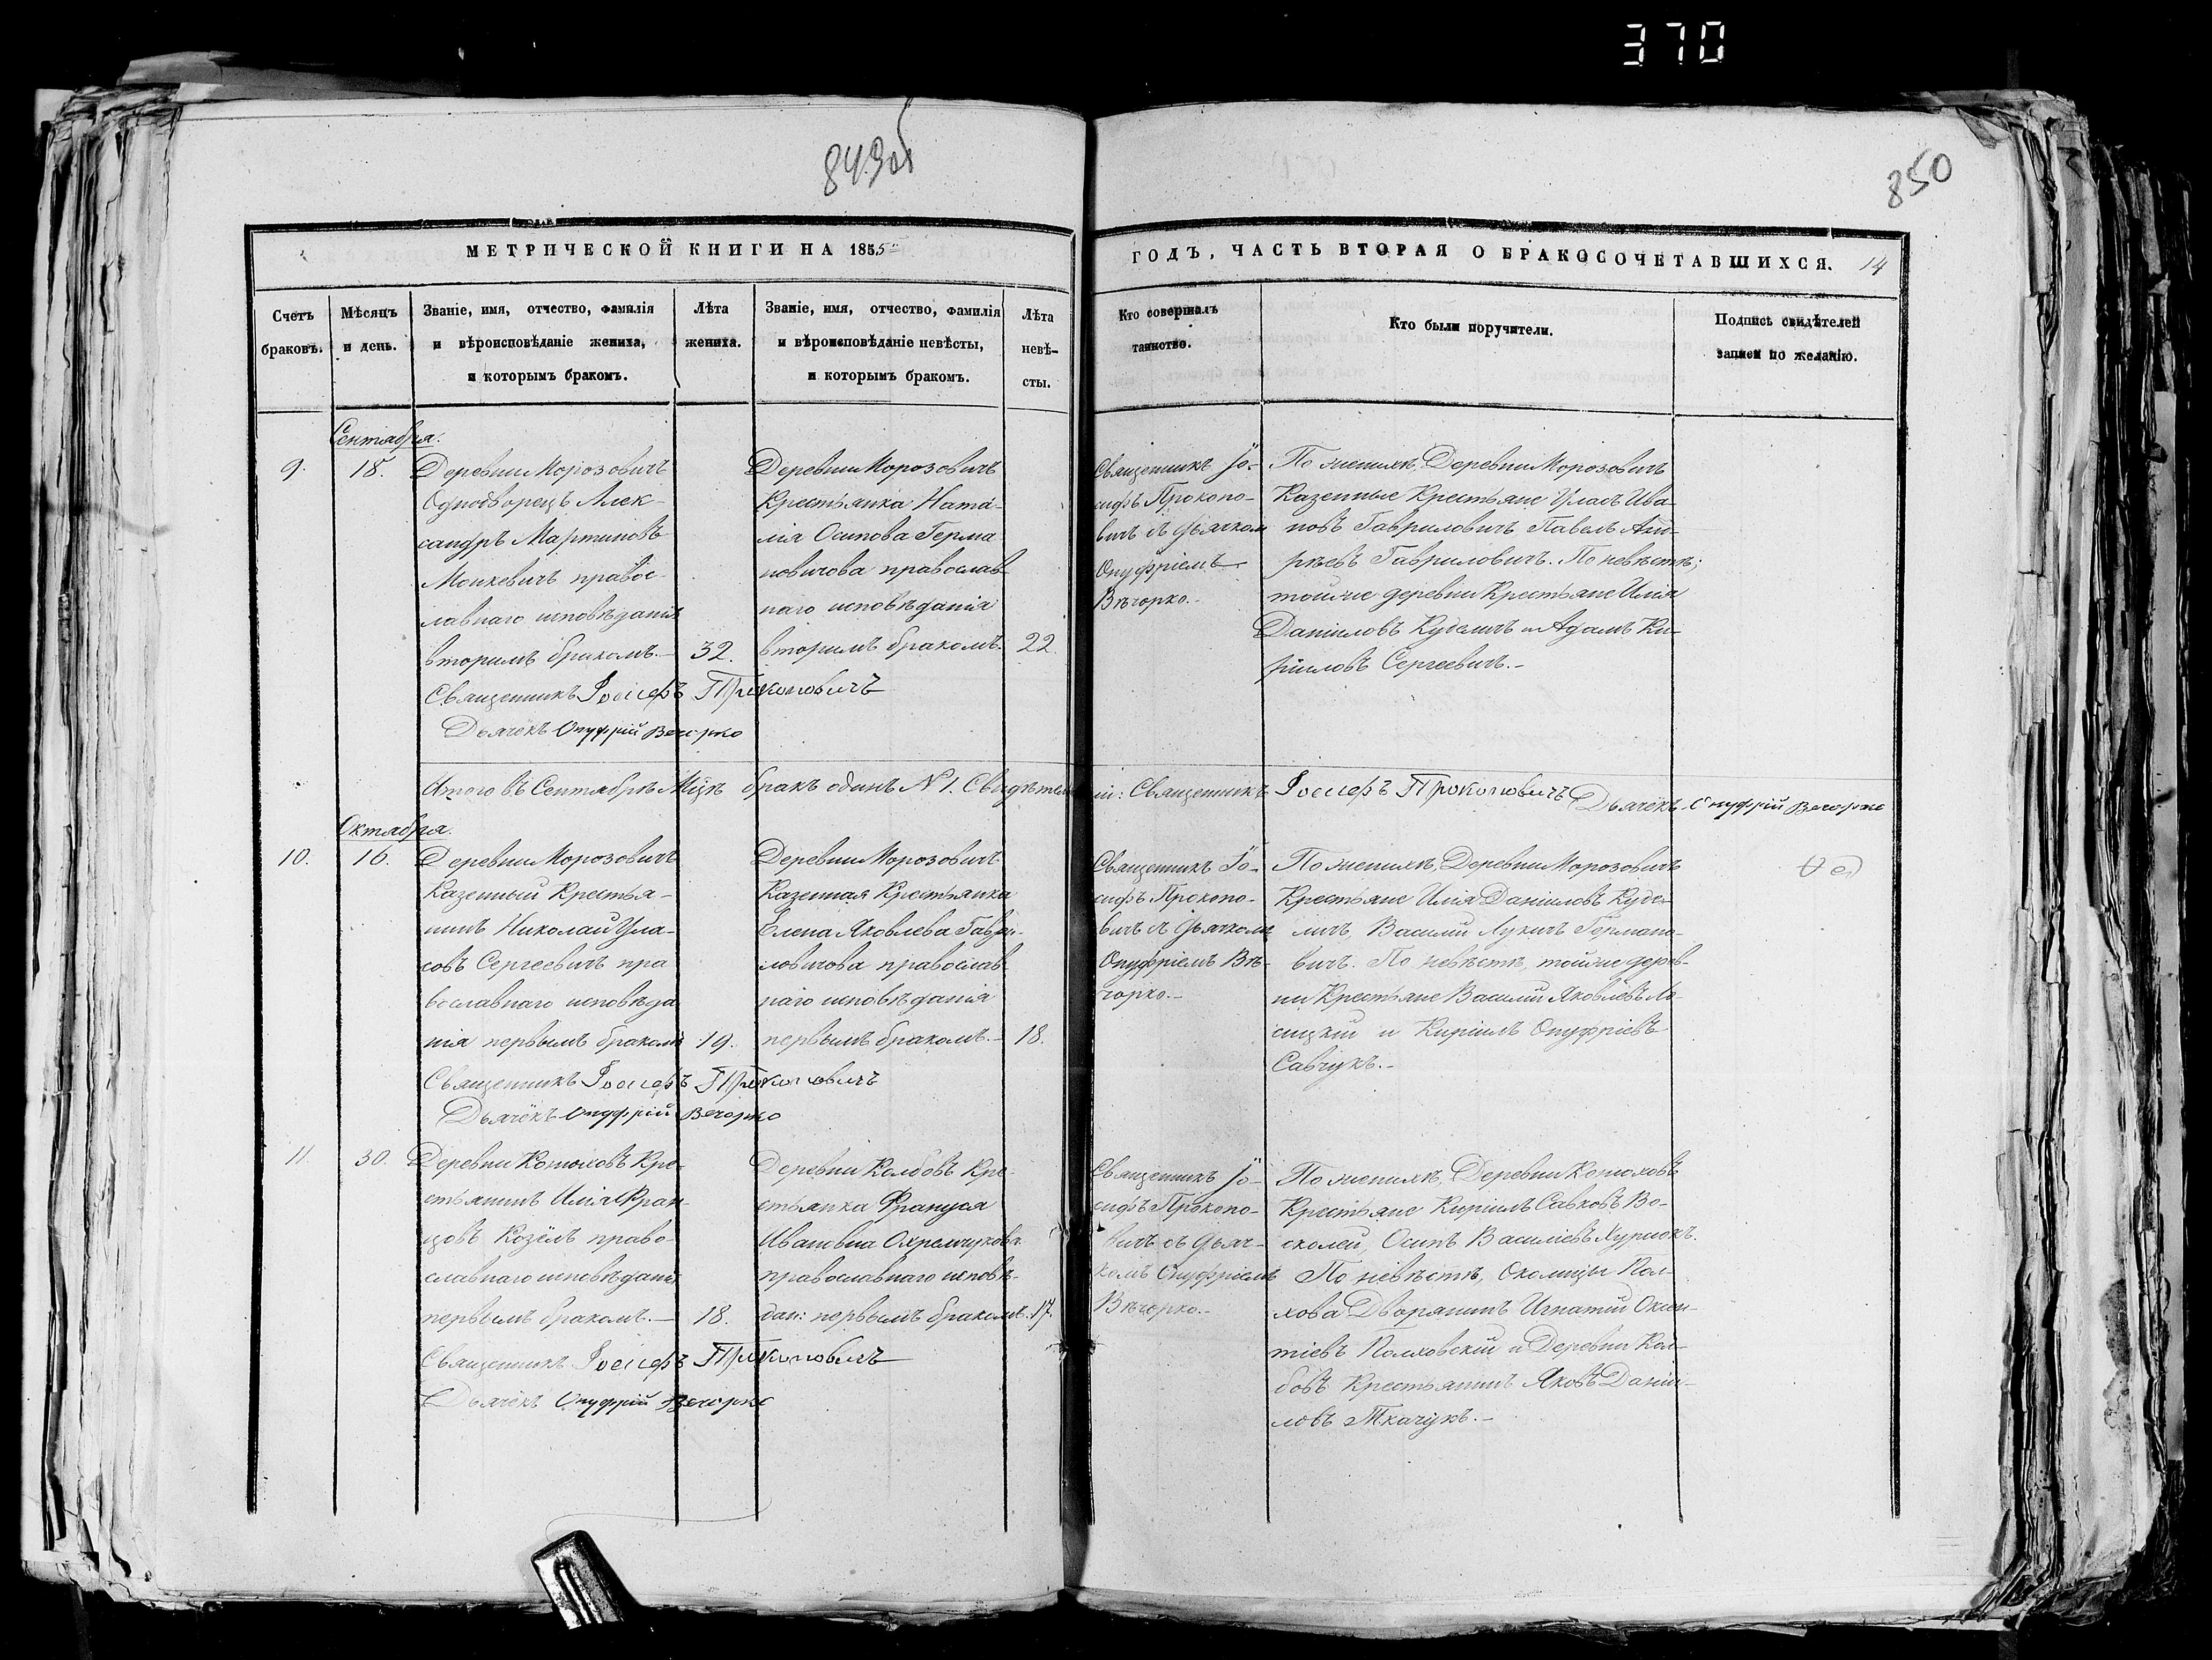 370
849об
850
МЕТРИЧЕСКОЙ КНИГИ НА 1855
ГОДЪ, ЧАСТЬ ВТОРАЯ О БРАКОСОЧЕТАВШИХСЯ. 14
Счетъ
браковъ.
Мѣсяцъ
и день.
Званіе, имя, отчество, фамилія
и вѣроисповѣданіе жениха,
и которымъ бракомъ.
Лѣта
жениха.
Званіе, имя, отчество, фамилія
и вѣроисповѣданіе невѣсты,
и которымъ бракомъ.
Лѣта
невѣ-
сты.
Кто совершалъ
таинство.
Кто были поручители.
Подпись свидѣтелей
записи по желанію.
Сентября.
9.
18.
Деревни Морозовичъ
Однодворецъ Алек-
сандръ Мартиновъ
Монкевичъ правос-
лавнаго исповѣданія
вторимъ бракомъ.-
32.
Деревни Морозовичъ
Крестьянка Ната-
лія Осипова Герма
новичова православ
наго исповѣданія
вторимъ бракомъ.
22.
Священникъ Іо-
сифъ Прокопо-
вичъ съ Дьячкомъ
Онуфріемъ
Вѣчорко.-
По женихѣ, Деревни Морозовичъ
Казенные Крестьяне Уласъ Ива-
новъ Гавриловичъ Павелъ Анд-
рѣевъ Гавриловичъ. По невѣстѣ;
тойже деревни Крестьяне Илія
Даніиловъ Куделичъ и Адамъ Ки-
риловъ Сергеевичъ.-
Священникъ Іосифъ Прокоповичъ
Дьячёкъ Онуфрій Вечорко
Итого въ Сентябрѣ Мцѣ бракъ одинъ N 1. Свидѣтели: Священникъ Іосифъ Прокоповичъ Дьячёкъ Онуфрій Вечорко
Октября.
10.
16.
Деревни Морозовичъ
Казенный Крестья-
нинъ Николай Ула-
совъ Сергеевичъ пра
вославнаго исповѣда
нія первымъ бракомъ
19.
Деревни Морозовичъ
Казенная Крестьянка
Елена Яковлева Гаври-
ловичова православ
наго исповѣданія
первымъ бракомъ.-
18.
Священникъ Іо-
сифъ Прокопо-
вичъ съ Дьячкомъ
Онуфріемъ Вѣ-
чорко.-
По женихѣ, Деревни Морозовичъ
Крестьяне Илія Даніиловъ Куде-
личъ, Василій Лукичъ Германо-
вичъ. По невѣстѣ, тойже дерев-
ни Крестьяне Василій Яковлевъ Ло-
сицкій и Кириилъ Онуфріевъ
Савчукъ.-
Священникъ Іосифъ Прокоповичъ
Дьячёкъ Онуфрій Вечорко
11.
30.
Деревни Котюховъ Кре-
стьянинъ Илія Фран-
цовъ Козёлъ право-
славнаго исповѣданія
первымъ бракомъ.-
18.
Деревни Колбовъ Кре-
стьянка Француся
Ивановна Охремчукова
православнаго исповѣ-
дан: первымъ бракомъ.
17.
Священникъ Іо-
сифъ Прокопо-
вичъ съ Дьяч-
комъ Онуфріемъ
Вѣчорко.-
По женихѣ, Деревни Котюховъ
Крестьяне Кириилъ Савковъ Во-
сколей, Осипъ Василіевъ
По невѣстѣ, Околицы Пол-
хова Дворянинъ Игнатій Оксен-
тіевъ Полховскій и Деревни Кол-
бовъ Крестьянинъ Яковъ Даніи-
ловъ Ткачукъ.-
Священникъ Іосифъ Прокоповичъ
Дьячёкъ Онуфрій Вечорко